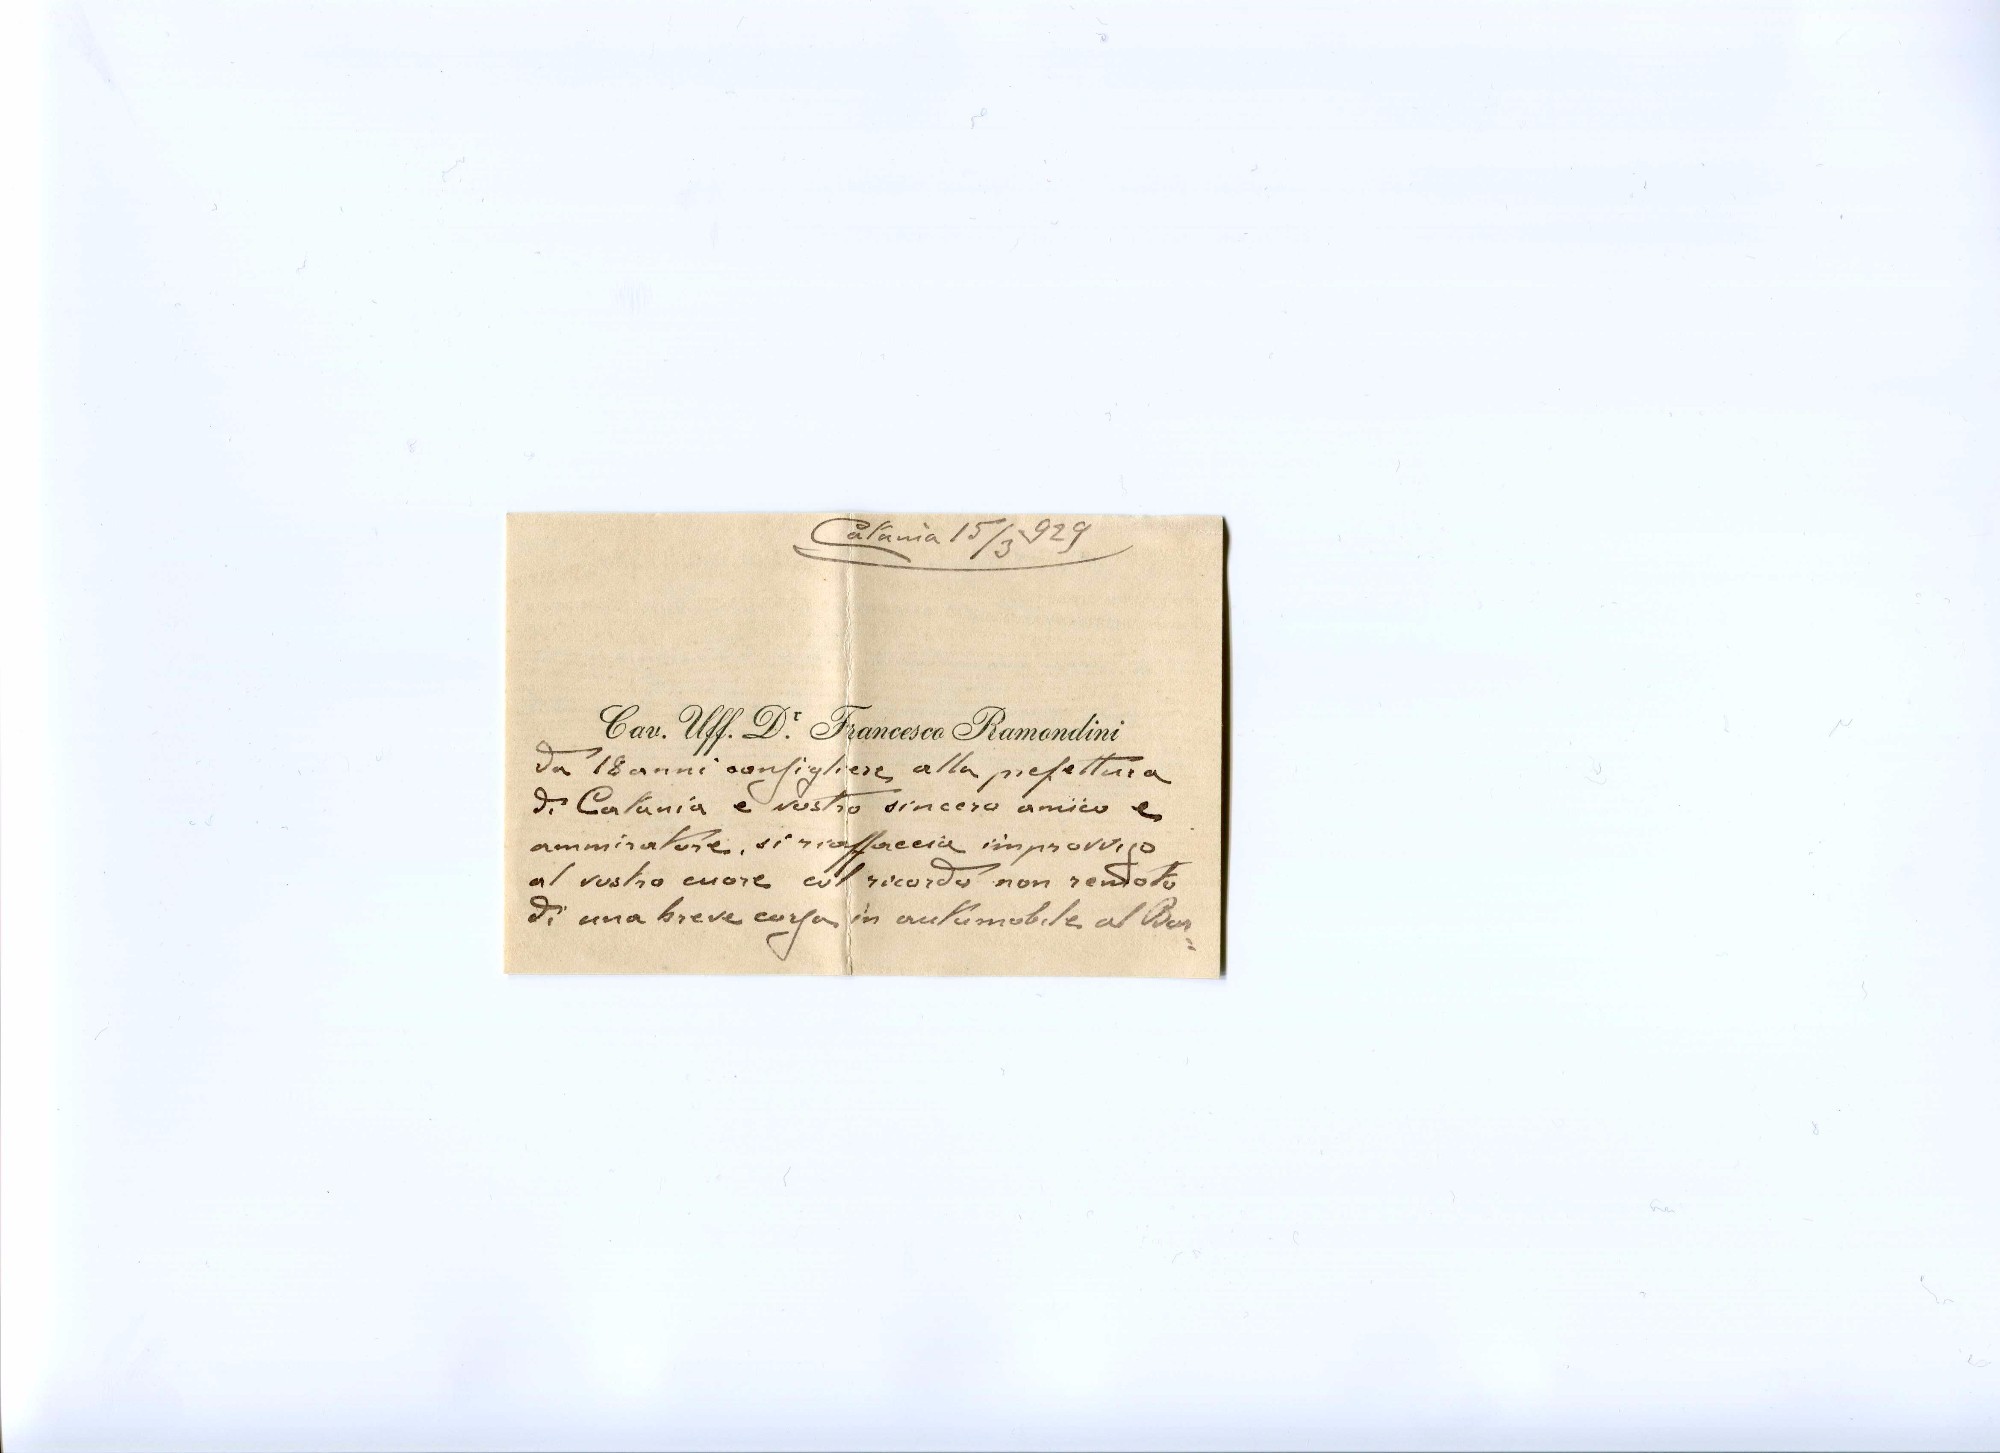 Catania 15/3 929
Cav. Uff. D.r Francesco Ramondini
da 18 anni consigliere alla prefettura
di Catania e vostro sincero amico e
ammiratore, si riaffaccia improvviso
al vostro cuore col ricordo non remoto
di una breve corsa in automobile al Bar=